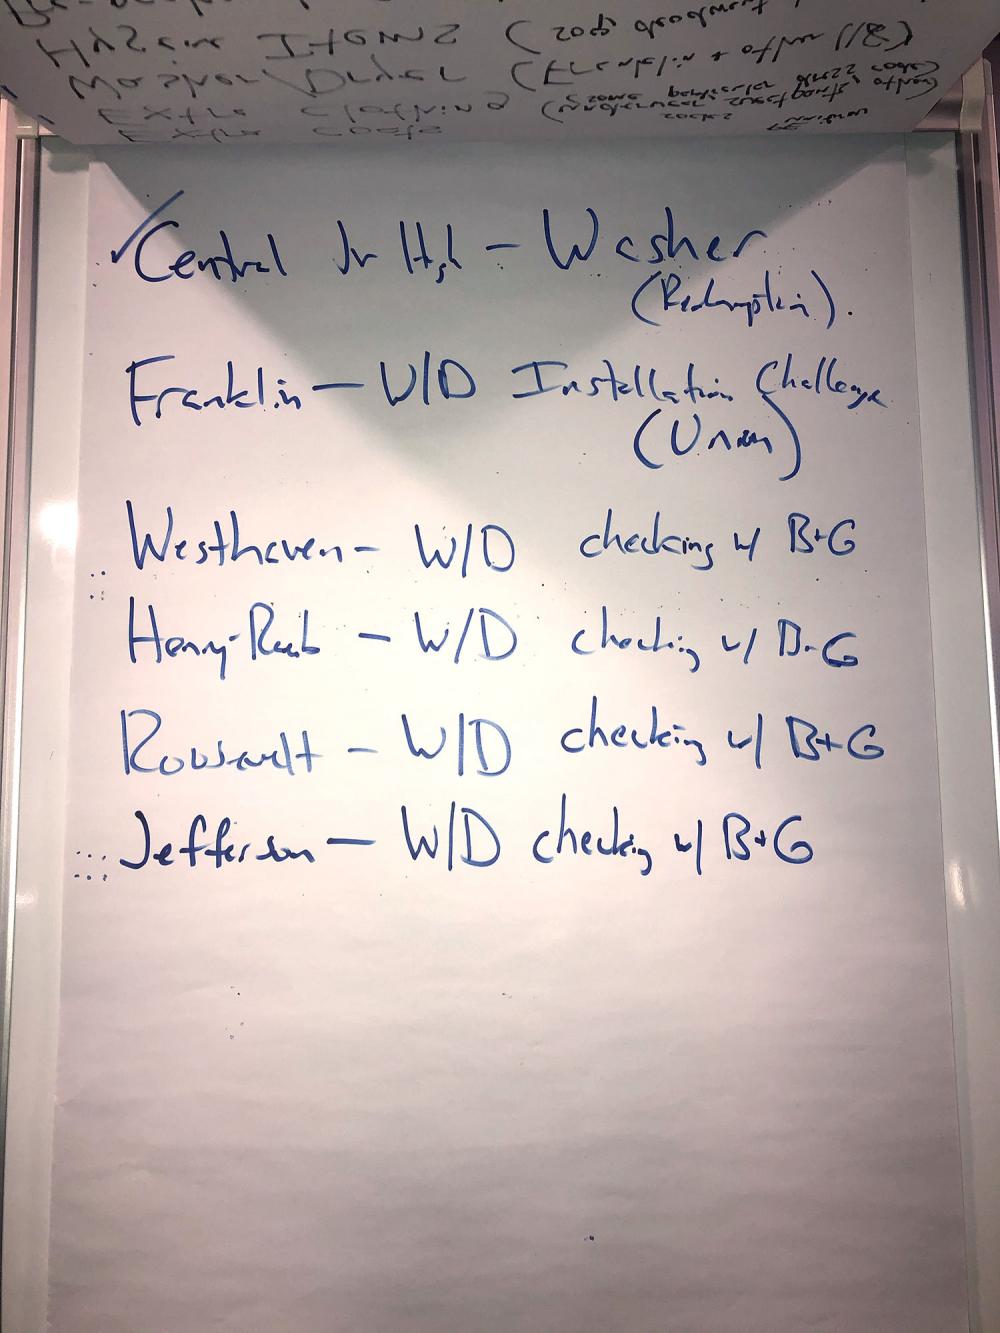 Hygiene Items (
Washer/Dryer (Franklin +
Extra Clothing
Extra Coats
✓Central Jr High - Washer
(Redemption).
Franklin - W/D Installation Challenge
(Union)
Westhaven - W/D checking w/ B+G
Henry-Raab - W/D checking w/ B+G
Roosevelt - W/D checking w/ B+G
Jefferson - W/D checking w/ B+G